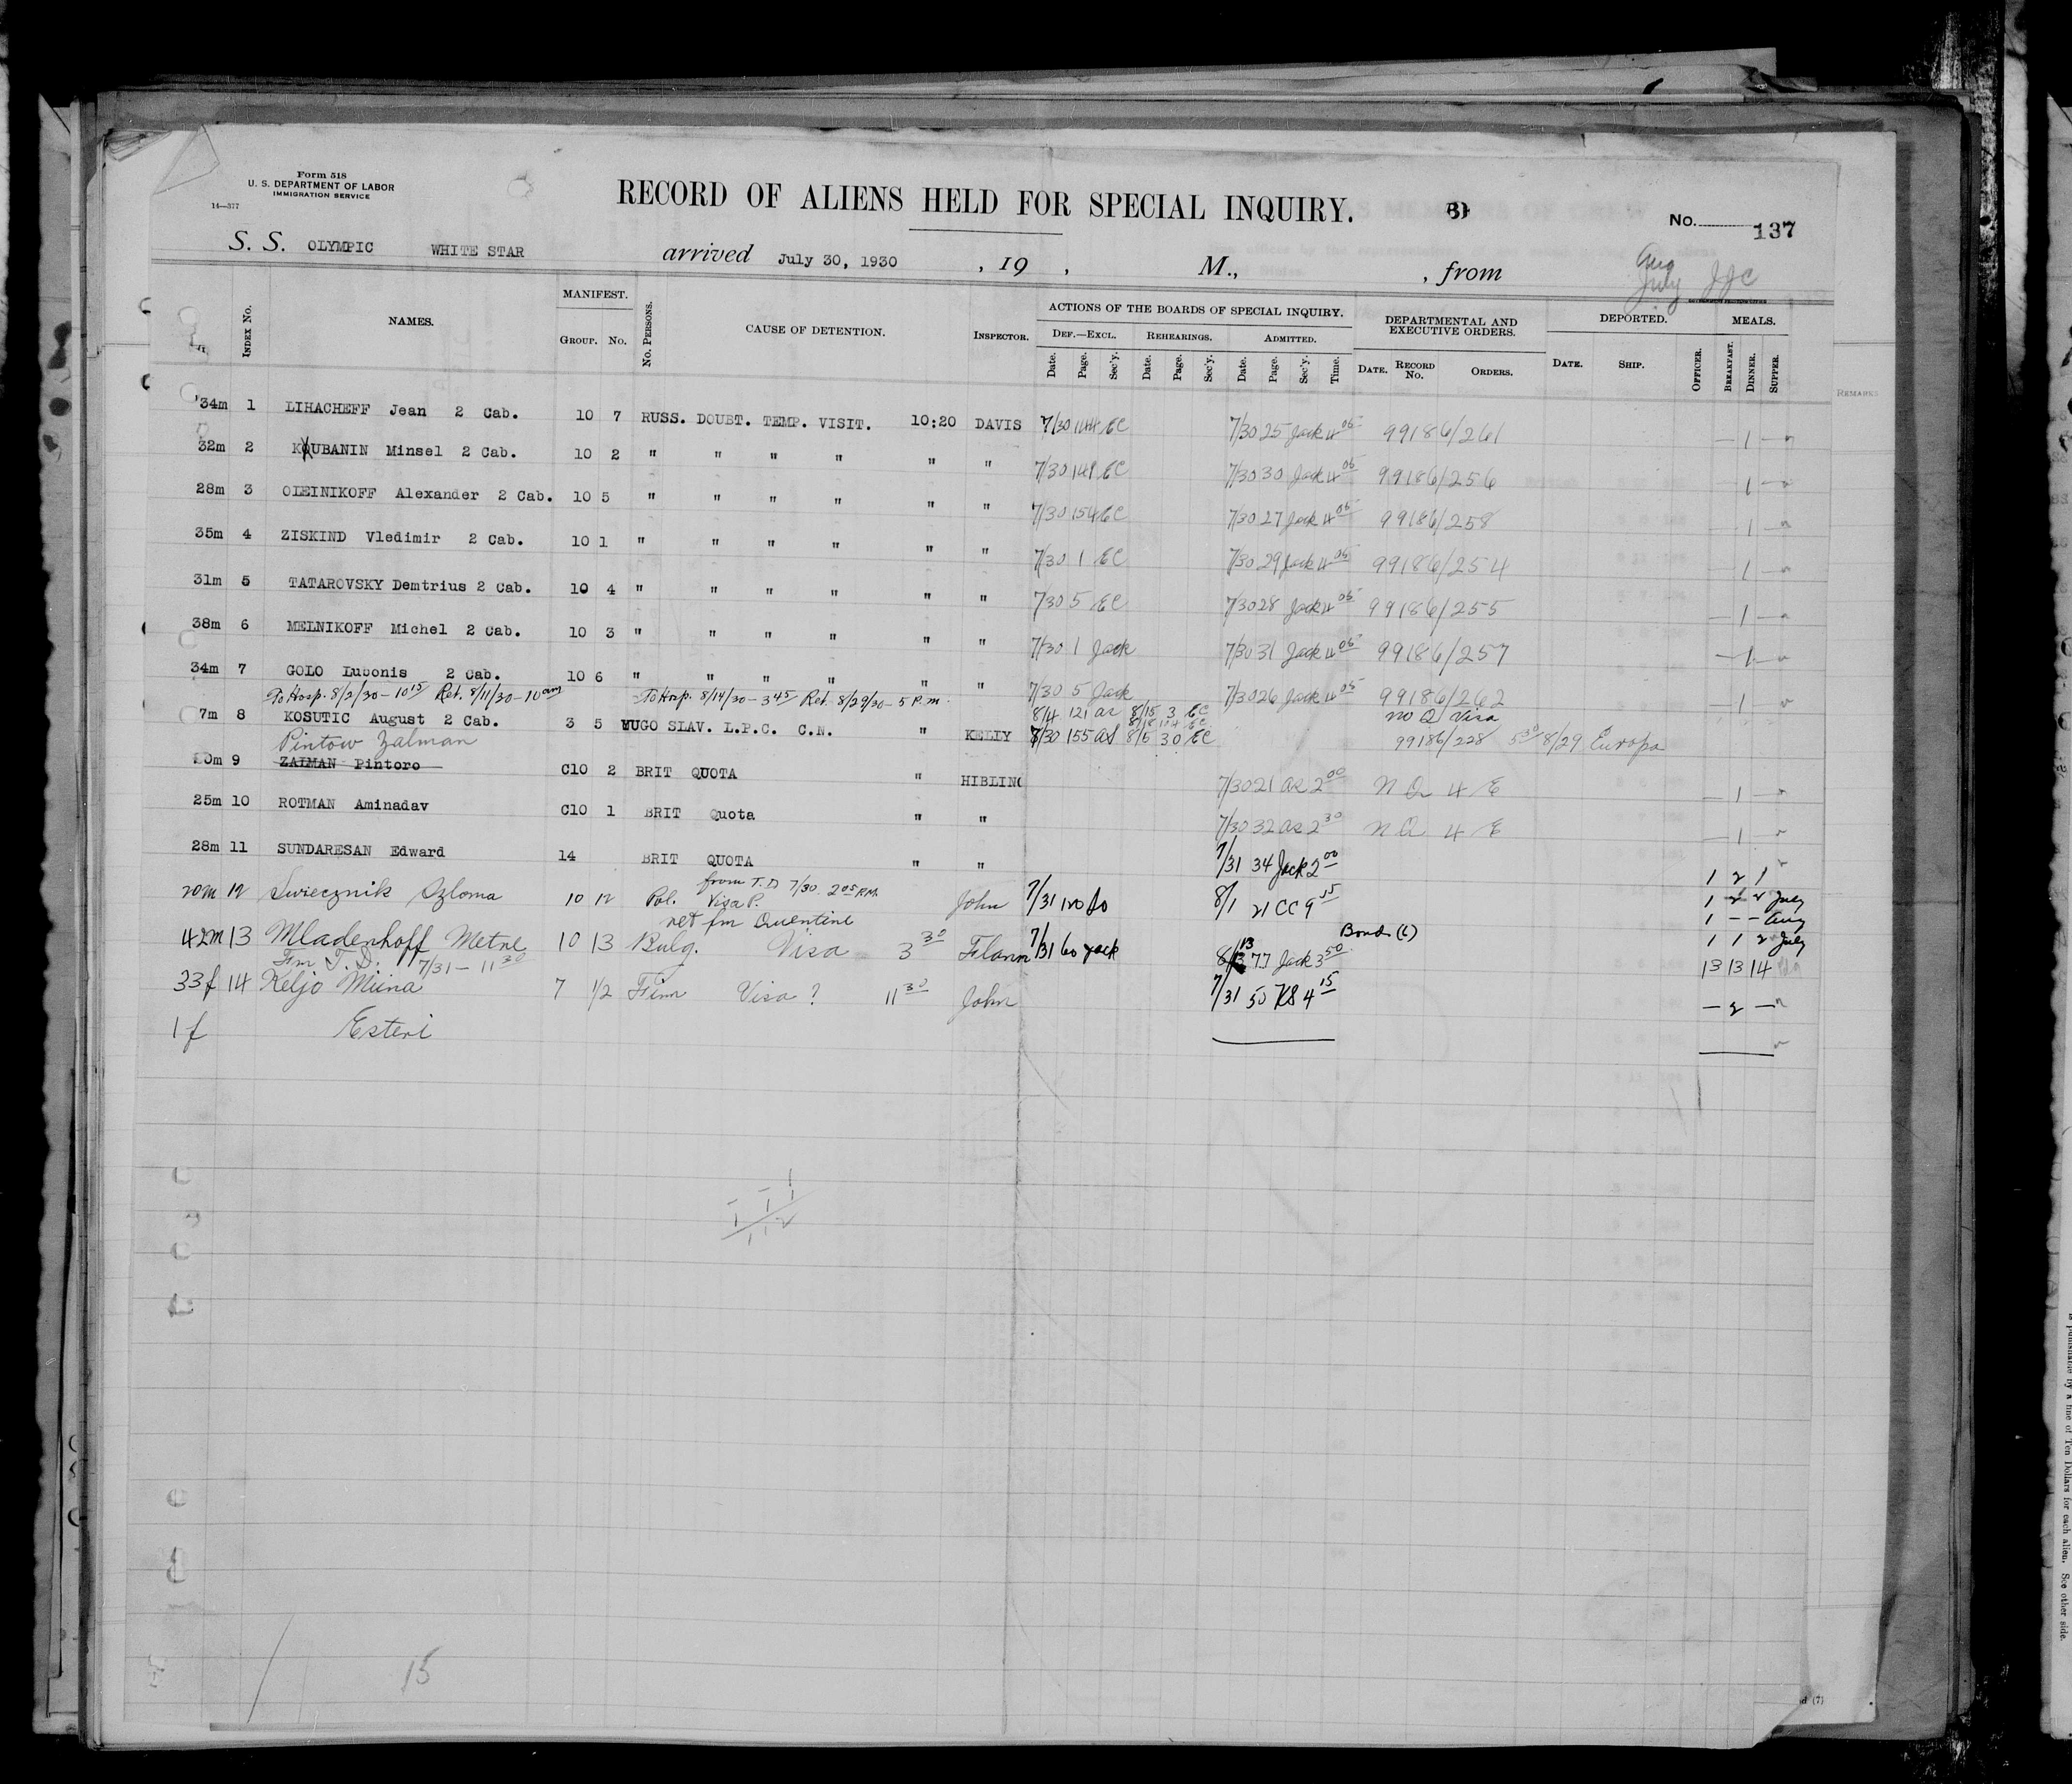 Form 518
U. S. DEPARTMENT OF LABOR
IMMIGRATION SERVICE
14—377
RECORD OF ALIENS HELD FOR SPECIAL INQUIRY.
No. 137
S. S. OLYMPIC WHITE STAR arrived July 30, 1930 , 19 , M., , from
Aug
July JJC
INDEX No. NAMES. MANIFEST. GROUP. No. No. PERSONS. CAUSE OF DETENTION. INSPECTOR. ACTIONS OF THE BOARDS OF SPECIAL INQUIRY. DEPARTMENTAL AND EXECUTIVE ORDERS. DEPORTED. MEALS.
DEF.—EXCL. REHEARINGS. ADMITTED.
Date. Page. Sec'y. Date. Page. Sec'y. Date. Page. Sec'y. Time. DATE. RECORD No. ORDERS. DATE. SHIP. OFFICER. BREAKFAST. DINNER. SUPPER.
REMARKS
34m 1 LIHACHEFF Jean 2 Cab. 10 7 RUSS. DOUBT. TEMP. VISIT. 10:20 DAVIS 7/30 144 EC 7/30 25 Jack 4 05 99186/261 — 1 —
32m 2 KOUBANIN Minsel 2 Cab. 10 2 " " " " " " 7/30 148 EC 7/30 30 Jack 4 05 99186/256 — 1 —
28m 3 OLEINIKOFF Alexander 2 Cab. 10 5 " " " " " " 7/30 154 EC 7/30 27 Jack 4 05 99186/258 — 1 —
35m 4 ZISKIND Vledimir 2 Cab. 10 1 " " " " " " 7/30 1 EC 7/30 29 Jack 4 05 99186/254 — 1 —
31m 5 TATAROVSKY Demtrius 2 Cab. 10 4 " " " " " " 7/30 5 EC 7/30 28 Jack 4 05 99186/255 — 1 —
38m 6 MELNIKOFF Michel 2 Cab. 10 3 " " " " " " 7/30 1 Jack 7/30 31 Jack 4 05 99186/257 — 1 —
34m 7 GOLO Lubonis 2 Cab. 10 6 " " " " " " 7/30 5 Jack 7/30 26 Jack 4 05 99186/262 — 1 —
To Hosp. 8/2/30 - 10 15 Ret. 8/11/30 - 10 am To Hosp. 8/14/30 - 3 45 Ret. 8/29/30 - 5 P.m.
8/4 121 as 8/15 3 EC no Q Visa
7m 8 KOSUTIC August 2 Cab. 3 5 YUGO SLAV. L.P.C. C.N. " KELLY 7/30 155 as 8/5 30 EC 99186/228 5 30 8/29 Europa
Pintow Zalman
20m 9 ZAIMAN Pintoro C10 2 BRIT QUOTA " HIBLING 7/30 21 as 2 00 N Q 4 E — 1 —
25m 10 ROTMAN Aminadav C10 1 BRIT Quota " " 7/30 32 as 2 30 N Q 4 E — 1 —
28m 11 SUNDARESAN Edward 14 BRIT QUOTA " " 7/31 34 Jack 2 00 1 2 1
from T.D 7/30 2 05 P.M.
20m 12 Swiecznik Szloma 10 12 Pol. Visa P. John 7/31 120 8/1 21 CC 9 15 1 2 2 July
ret fm Quentine 1 — — Aug
42m 13 Mladenhoff Metre 10 13 Bulg. Visa 3 30 Flann 7/31 60 Jack 8/13 77 Jack 3 50 Bonds (L) 1 1 2 July
Fm T. D. 7/31 - 11 30 13 13 14
33f 14 Keljo Miina 7 1/2 Finn Visa ? 11 30 John 7/31 50 KS 4 15 — 2 —
1f Esteri
15